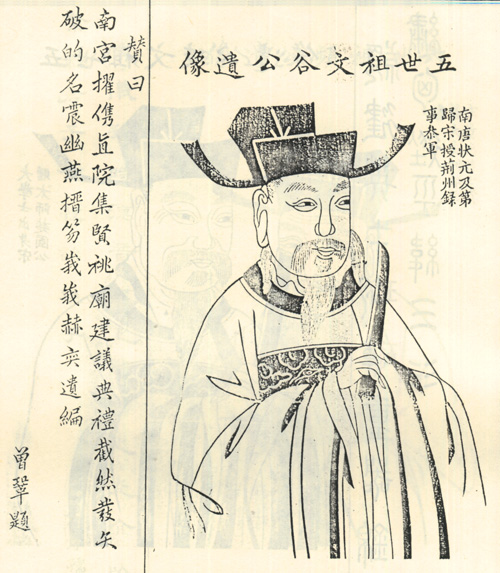 五世祖文谷公遺像
南唐狀元及第
歸宋授荊州錄
事叅軍
贊曰
南宮擢儁直院集賢祧廟建議典禮截然發矢
破的名震幽燕搢笏峩峩赫奕遺編
曾鞏題